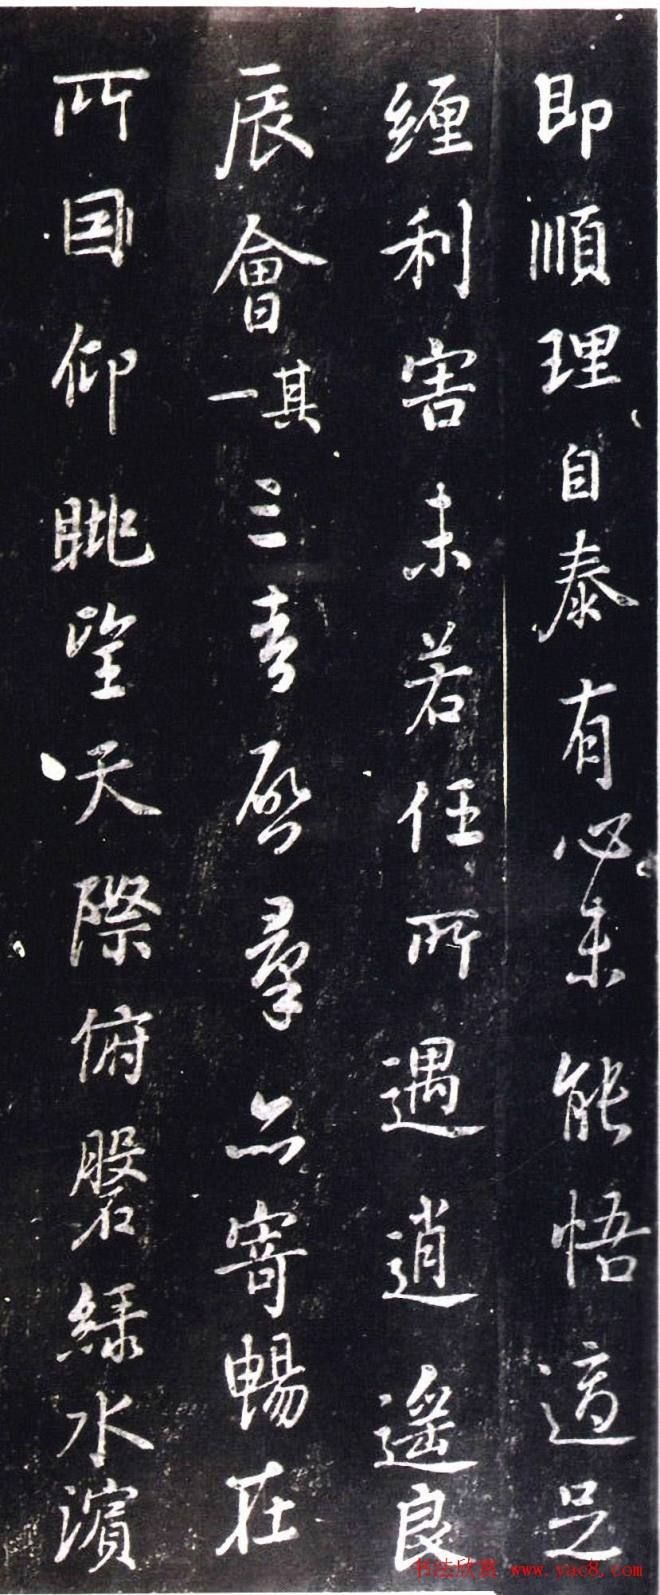 即順理自泰有心未能悟適足
纏利害未若任所遇逍遙良
辰會其一三春啓羣品寄暢在
所因仰眺望天際俯磐綠水濱
书法欣赏 www.yac8.com